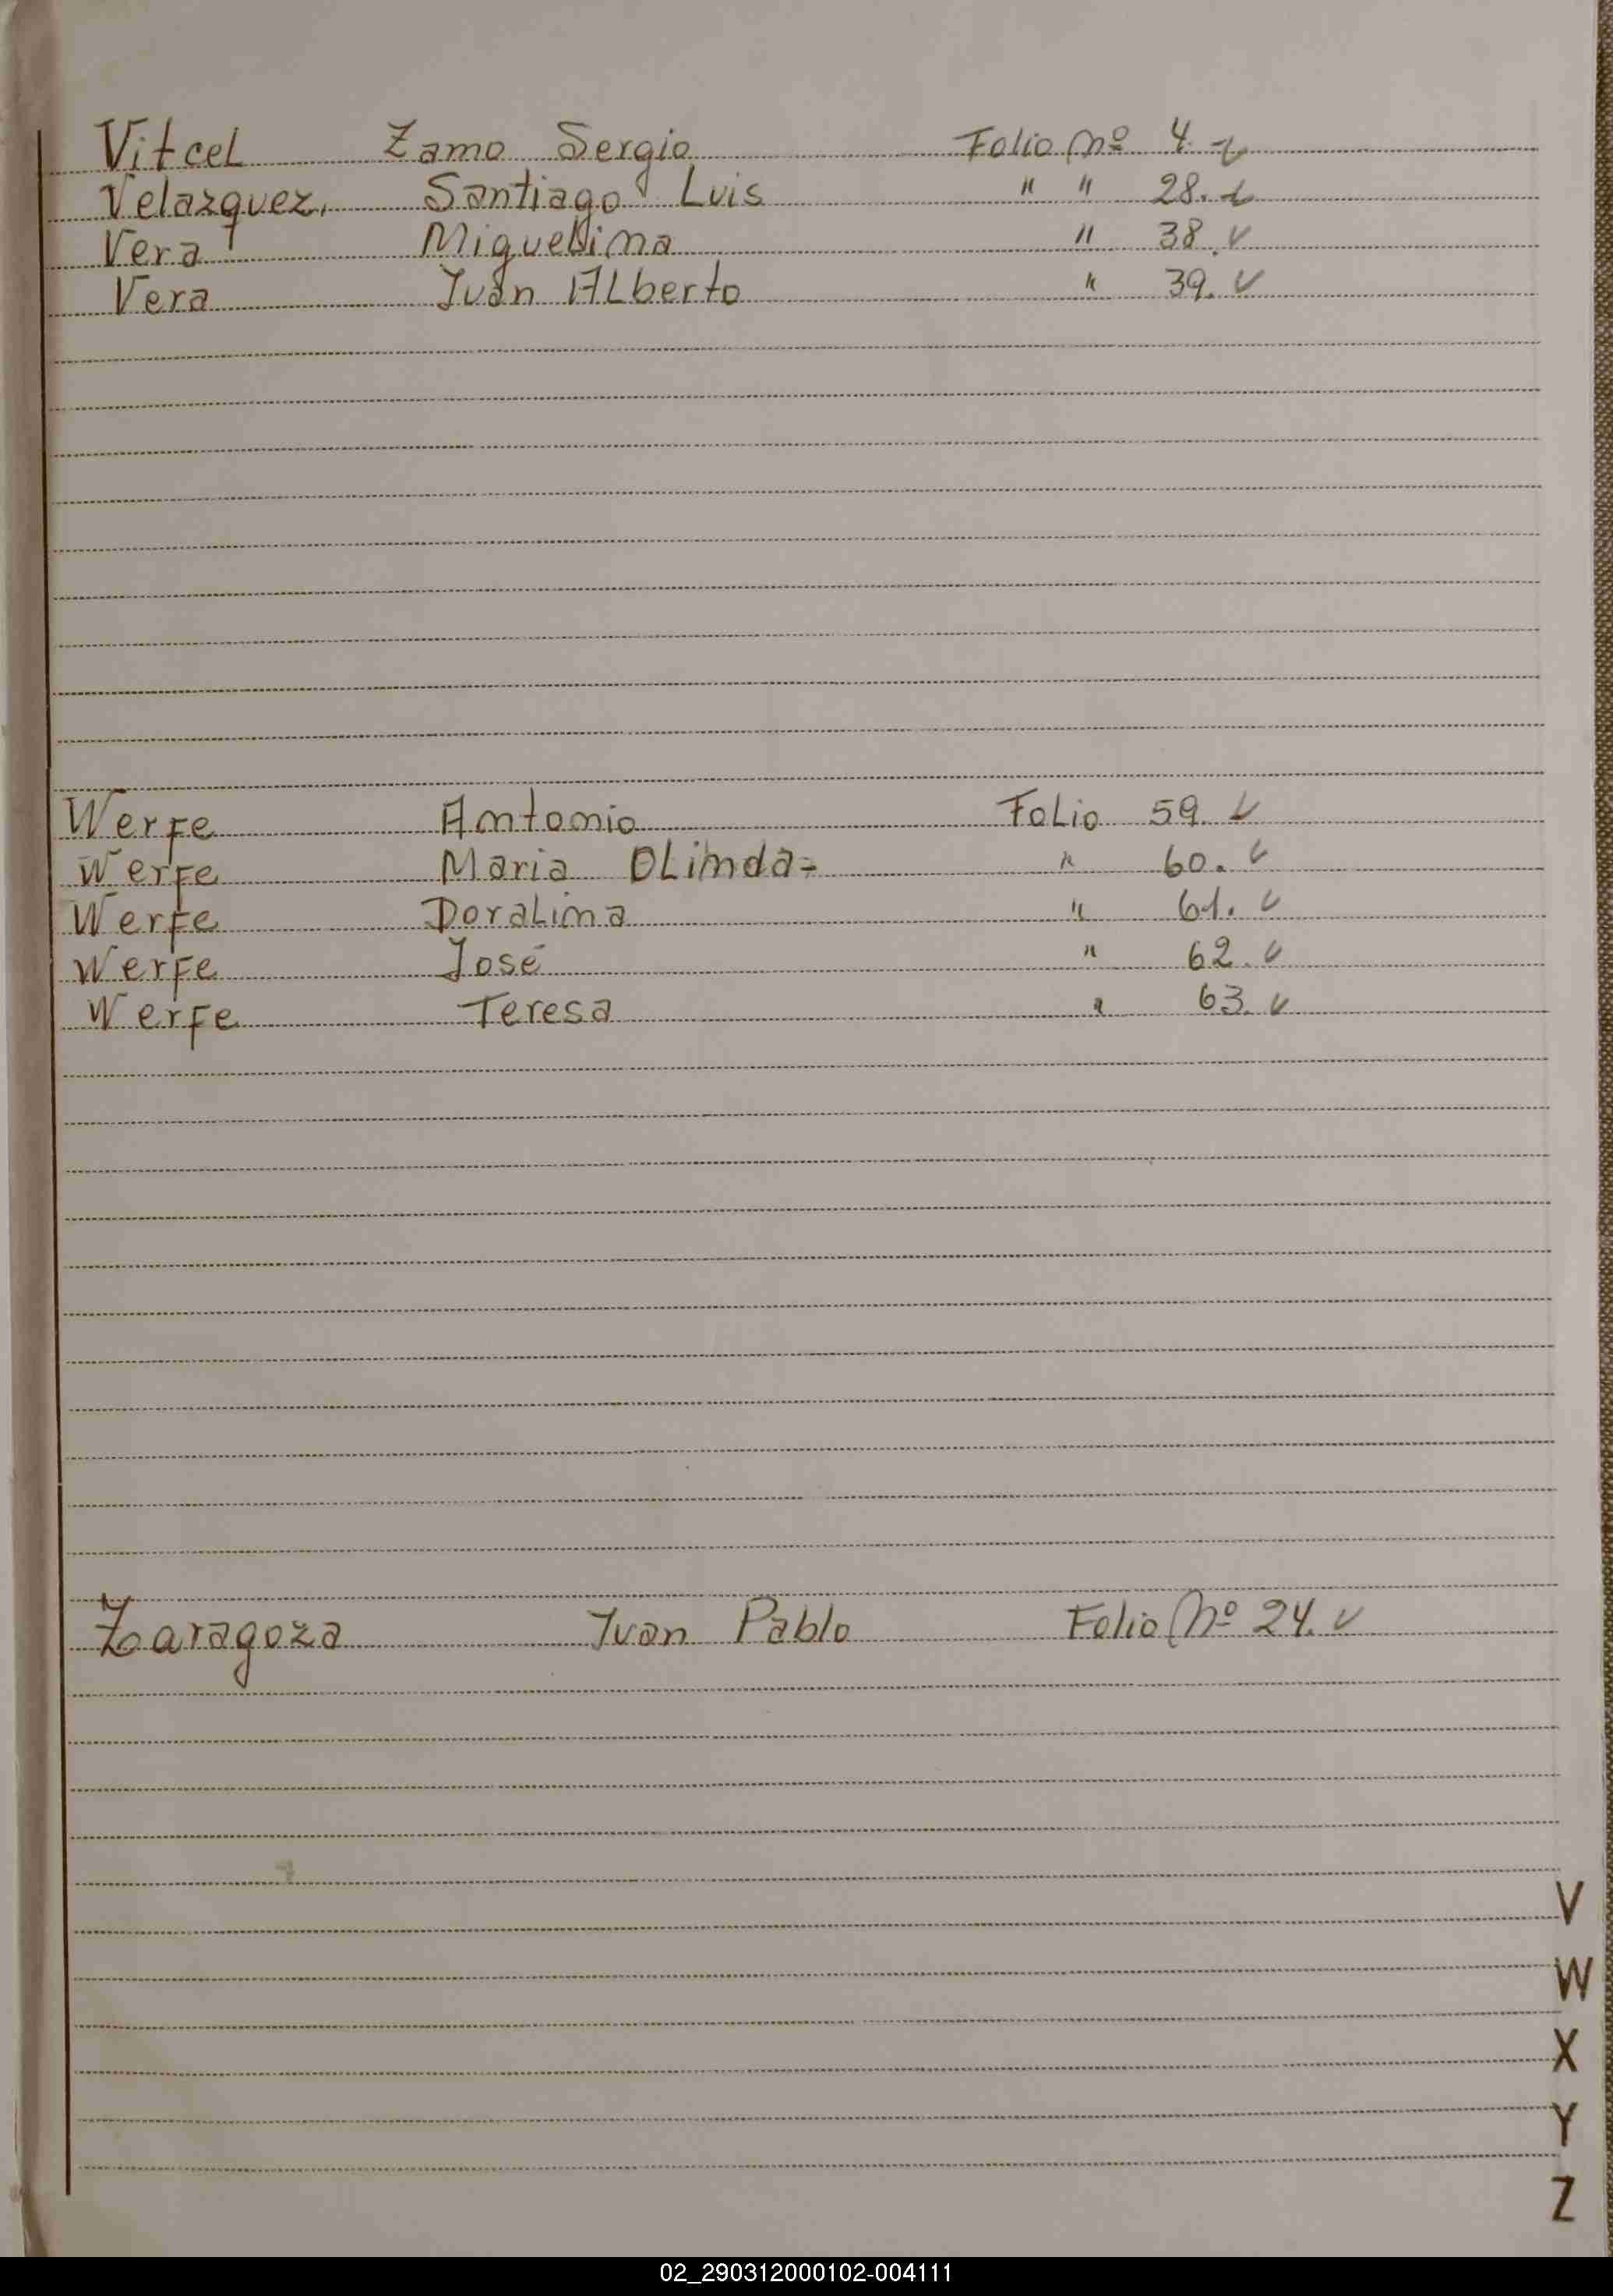 Vitcel Zamo Sergio Folio Nº 4.
Velazquez, Santiago Luis " " 28.
Vera Miguelina " 38.
Vera Juan ALberto " 39.
Werfe Antonio FoLio 59.
Werfe Maria OLinda= " 60.
Werfe DoraLina " 61.
Werfe José " 62.
Werfe Teresa " 63.
Zaragoza Juan Pablo Folio Nº 24.
V
W
X
Y
Z
02_290312000102-004111